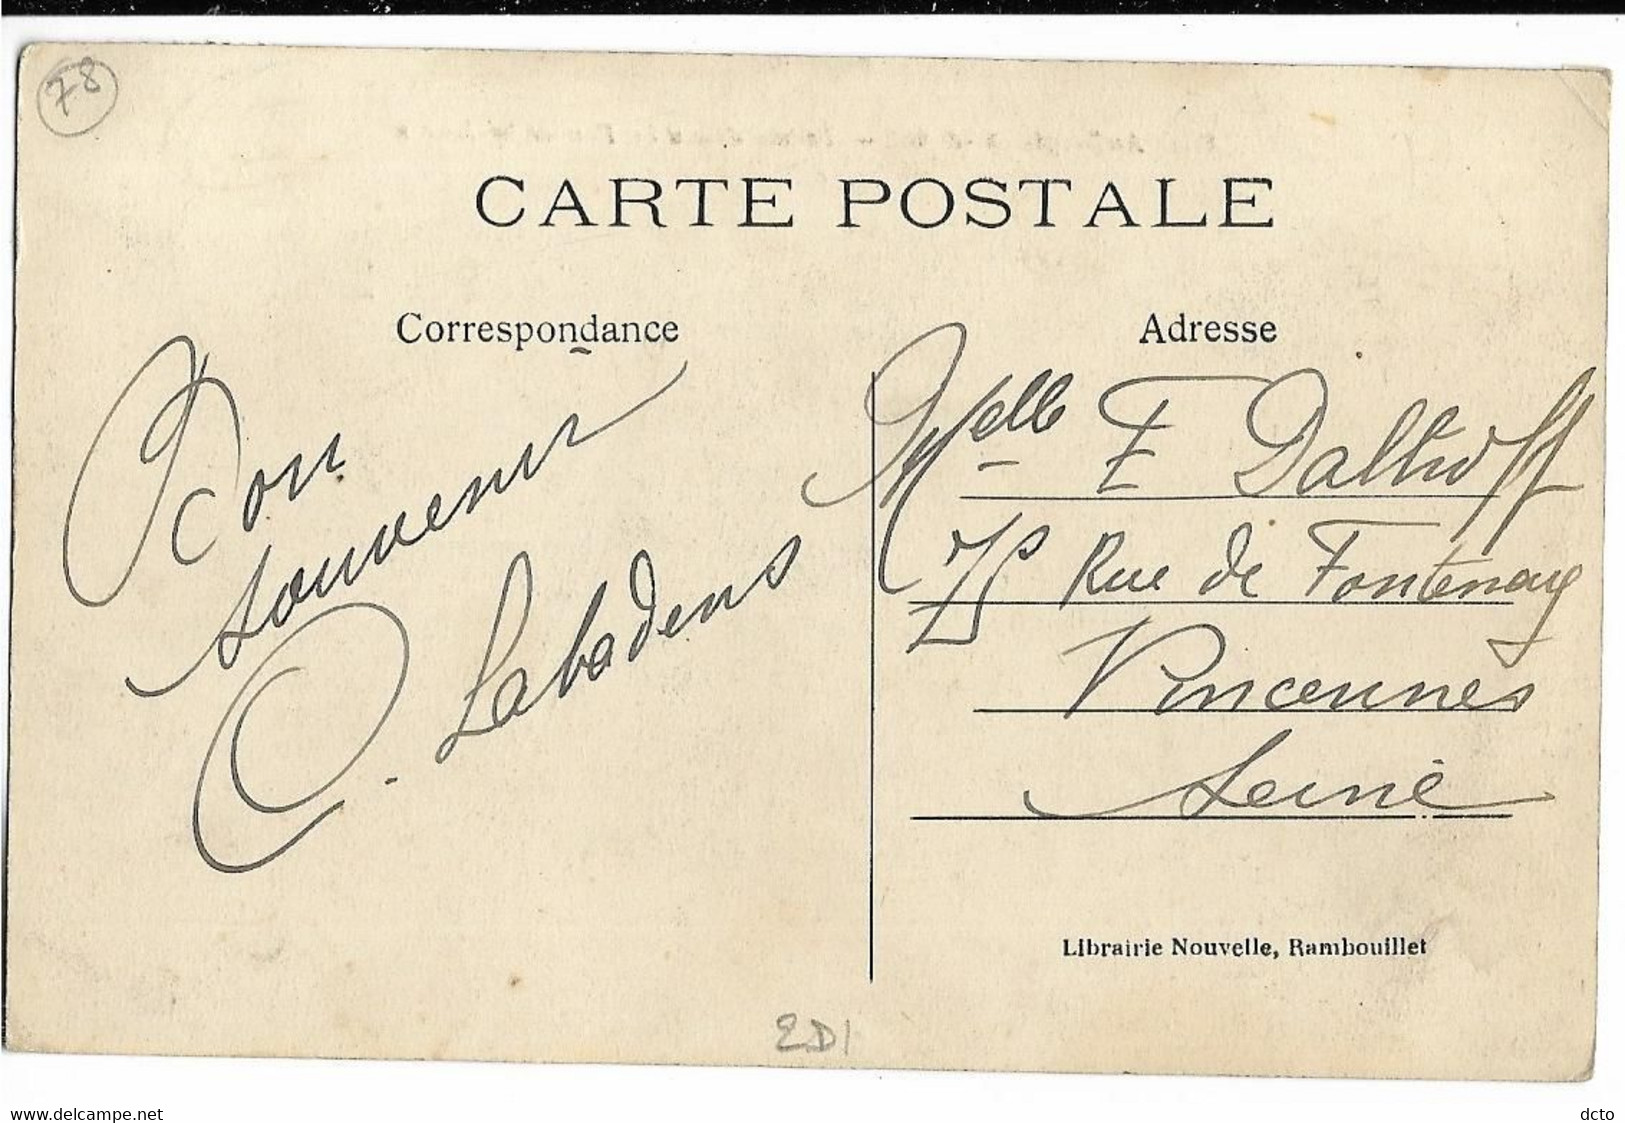 78
CARTE POSTALE
Correspondance
Bon
souvenir
C. Labadens
Adresse
Melle E Dalhoff
Rue de Fontenay
Vincennes
Seine
Librairie Nouvelle, Rambouillet
EDI
www.delcampe.net
dcto